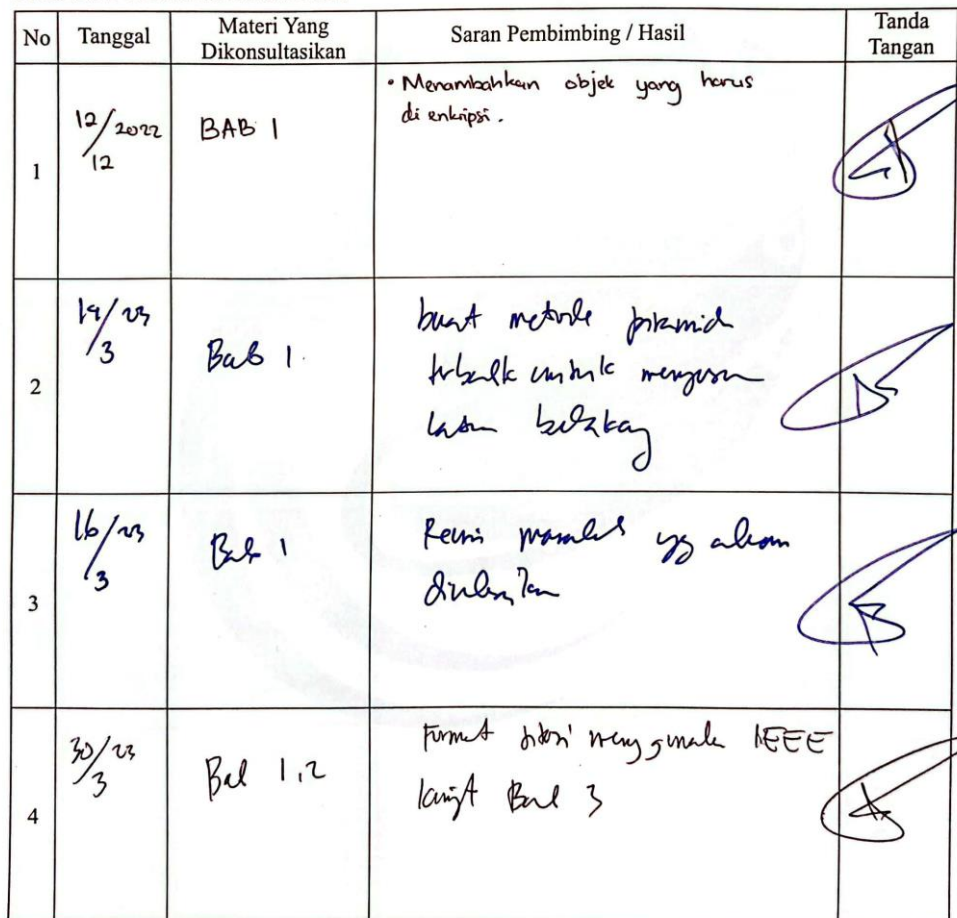 No Tanggal Materi Yang Dikonsultasikan Saran Pembimbing / Hasil Tanda Tangan
1 12/12 2022 BAB 1 • Menambahkan objek yang harus
di enkripsi.
2 /3 23 Bab 1 buat metode piramid
terbalik untuk menyusun
latar belakang
3 16/3 23 Bab 1 masalah yg akan
4 30/3 23 Bab 1,2 Format sitasi menggunakan IEEE
lanjut Bab 3